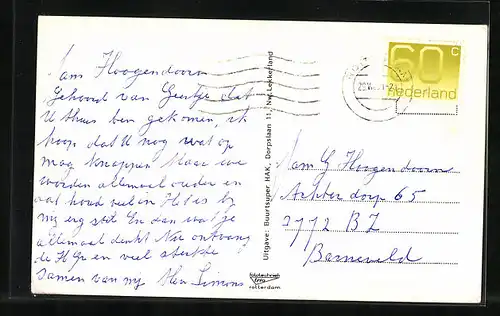 Mam Hoogendoorn
Gehoord van Geertje dat
U thuis ben gekomen, ik
hoop dat U nog wat op
mag knappen Maar we
worden allemaal ouder en
dat houd veel in Het is bij
mij erg stil En dan wat je
allemaal denkt Nu ontvang
de H Gr en veel sterkte
samen van mij Simons
Uitgave: Buurtsuper HAK, Dorpslaan 11, Nw. Lekkerland
rotterdam
60 c
Nederland
Mam G Hoogendoorn
Achterdorp 65
3772 BZ
Barneveld